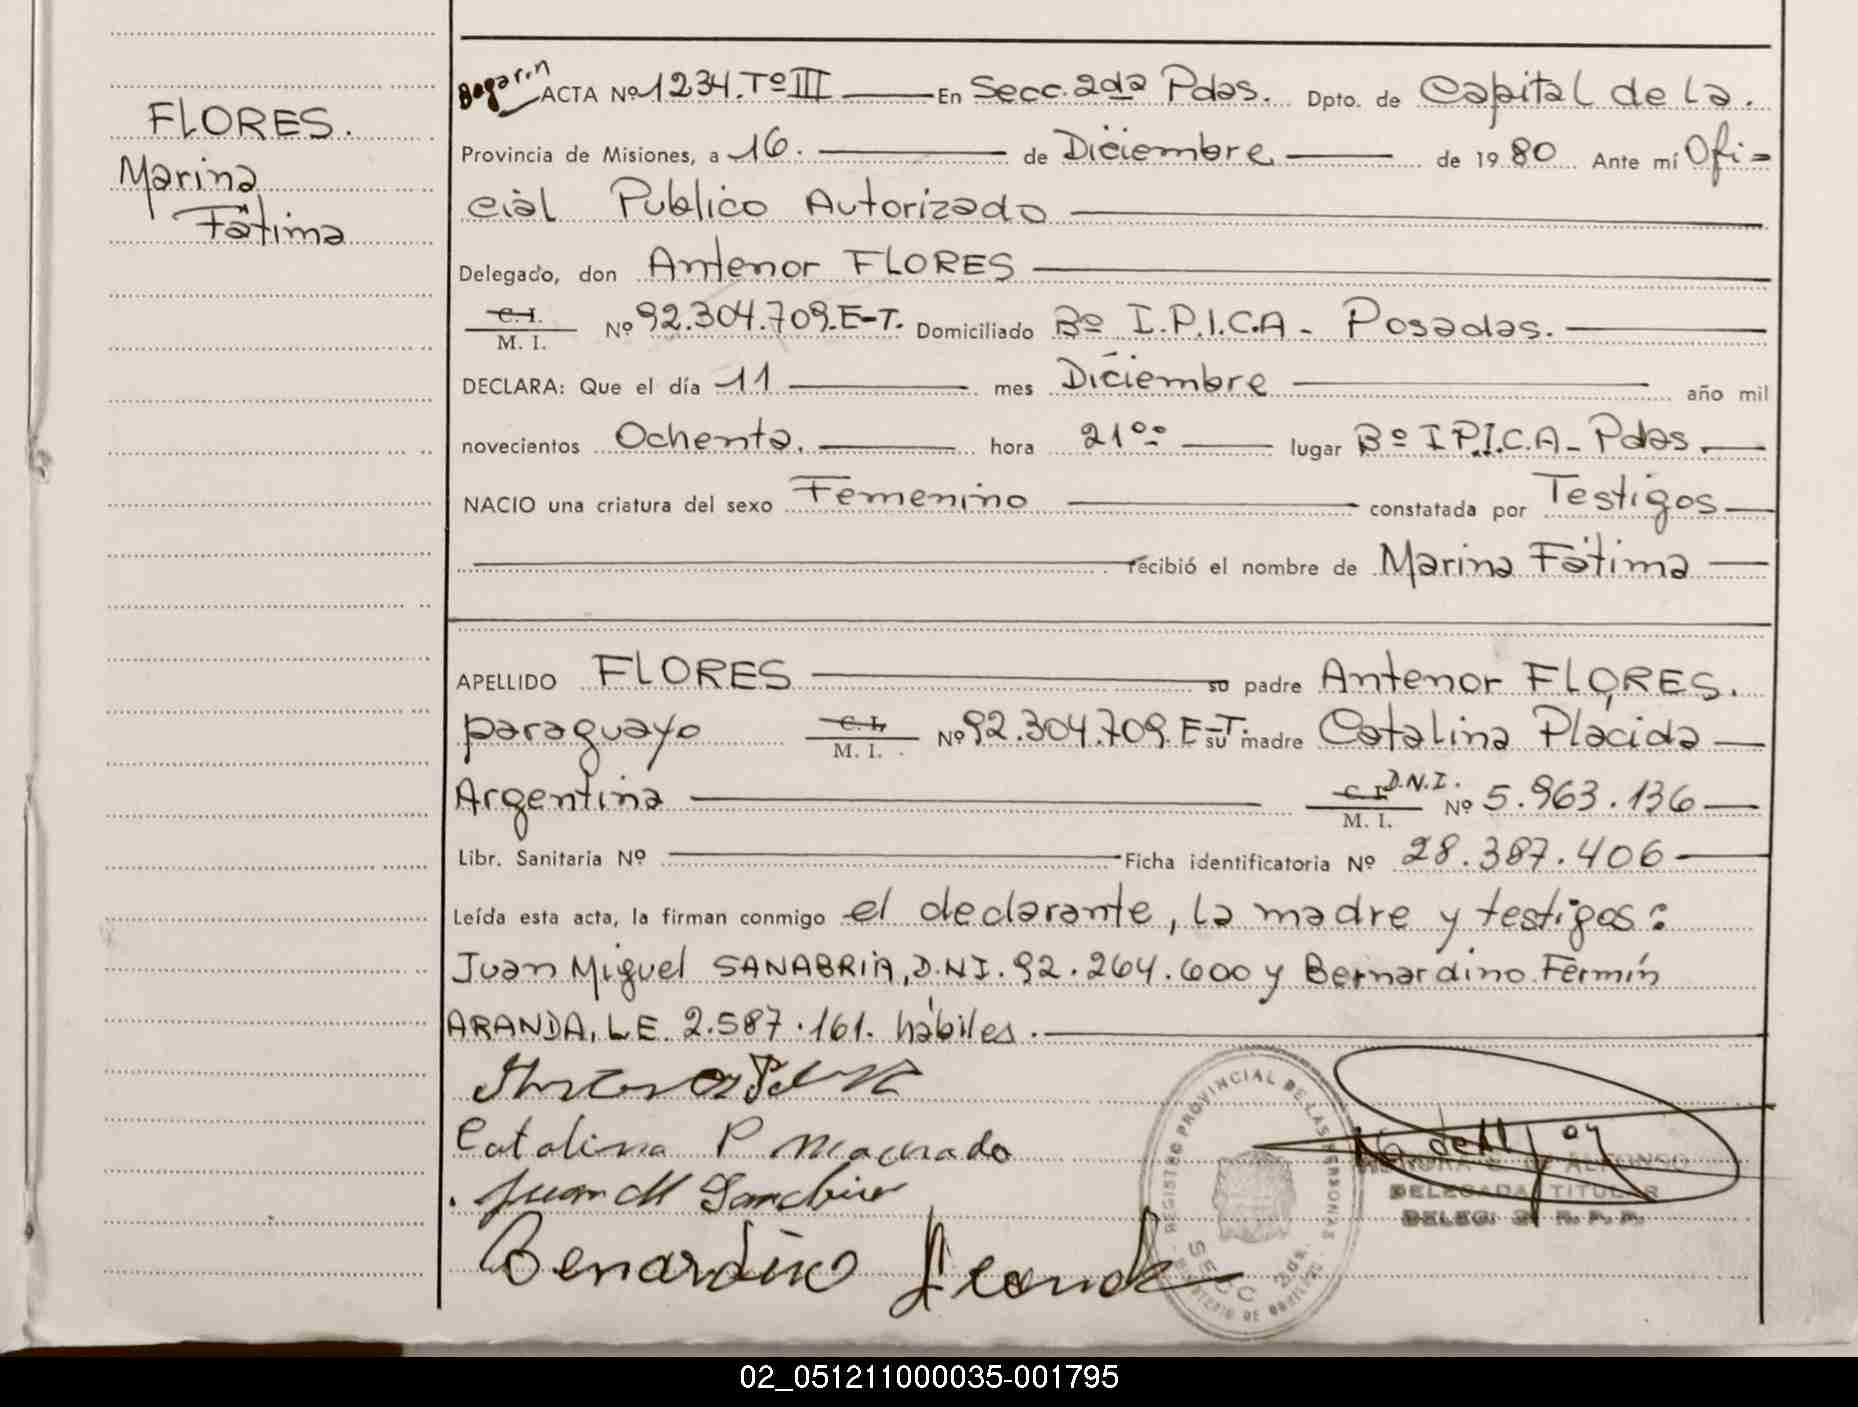 FLORES.
Marina
Fátima
Bogarin ACTA Nº 1234.Tº III En Secc. 2da Pdas. Dpto. de Capital de la.
Provincia de Misiones, a 16. de Diciembre de 19 80 Ante mí Ofi=
cial Publico Autorizado
Delegado, don Antenor FLORES
C.I.
M. I. Nº 92.304.709.E-T. Domiciliado Bº I.P.I.C.A - Posadas.
DECLARA: Que el día 11 mes Diciembre año mil
novecientos Ochenta. hora 21⁰⁰ lugar Bº I.P.I.C.A - Pdas.
NACIO una criatura del sexo Femenino constatada por Testigos
recibió el nombre de Marina Fátima
APELLIDO FLORES su padre Antenor FLORES.
paraguayo C.I. M. I. Nº 92.304.709.E-T. su madre Catalina Placida
Argentina C.I. D.N.I. M. I. Nº 5.963.136
Libr. Sanitaria Nº Ficha identificatoria Nº 28.387.406
Leída esta acta, la firman conmigo el declarante, la madre y testigos:
Juan Miguel SANABRIA, D.N.I. 92.264.600 y Bernardino Fermín
ARANDA, L.E. 2.587.161. hábiles.
Catalina P Machado
Juan M Sanabria
Benardino
REGISTRO PROVINCIAL DE LAS PERSONAS
SECC 2da.
DE ALFONSO
DELEGADA TITULAR
DELEG. 2ª R. P. P.
02_051211000035-001795